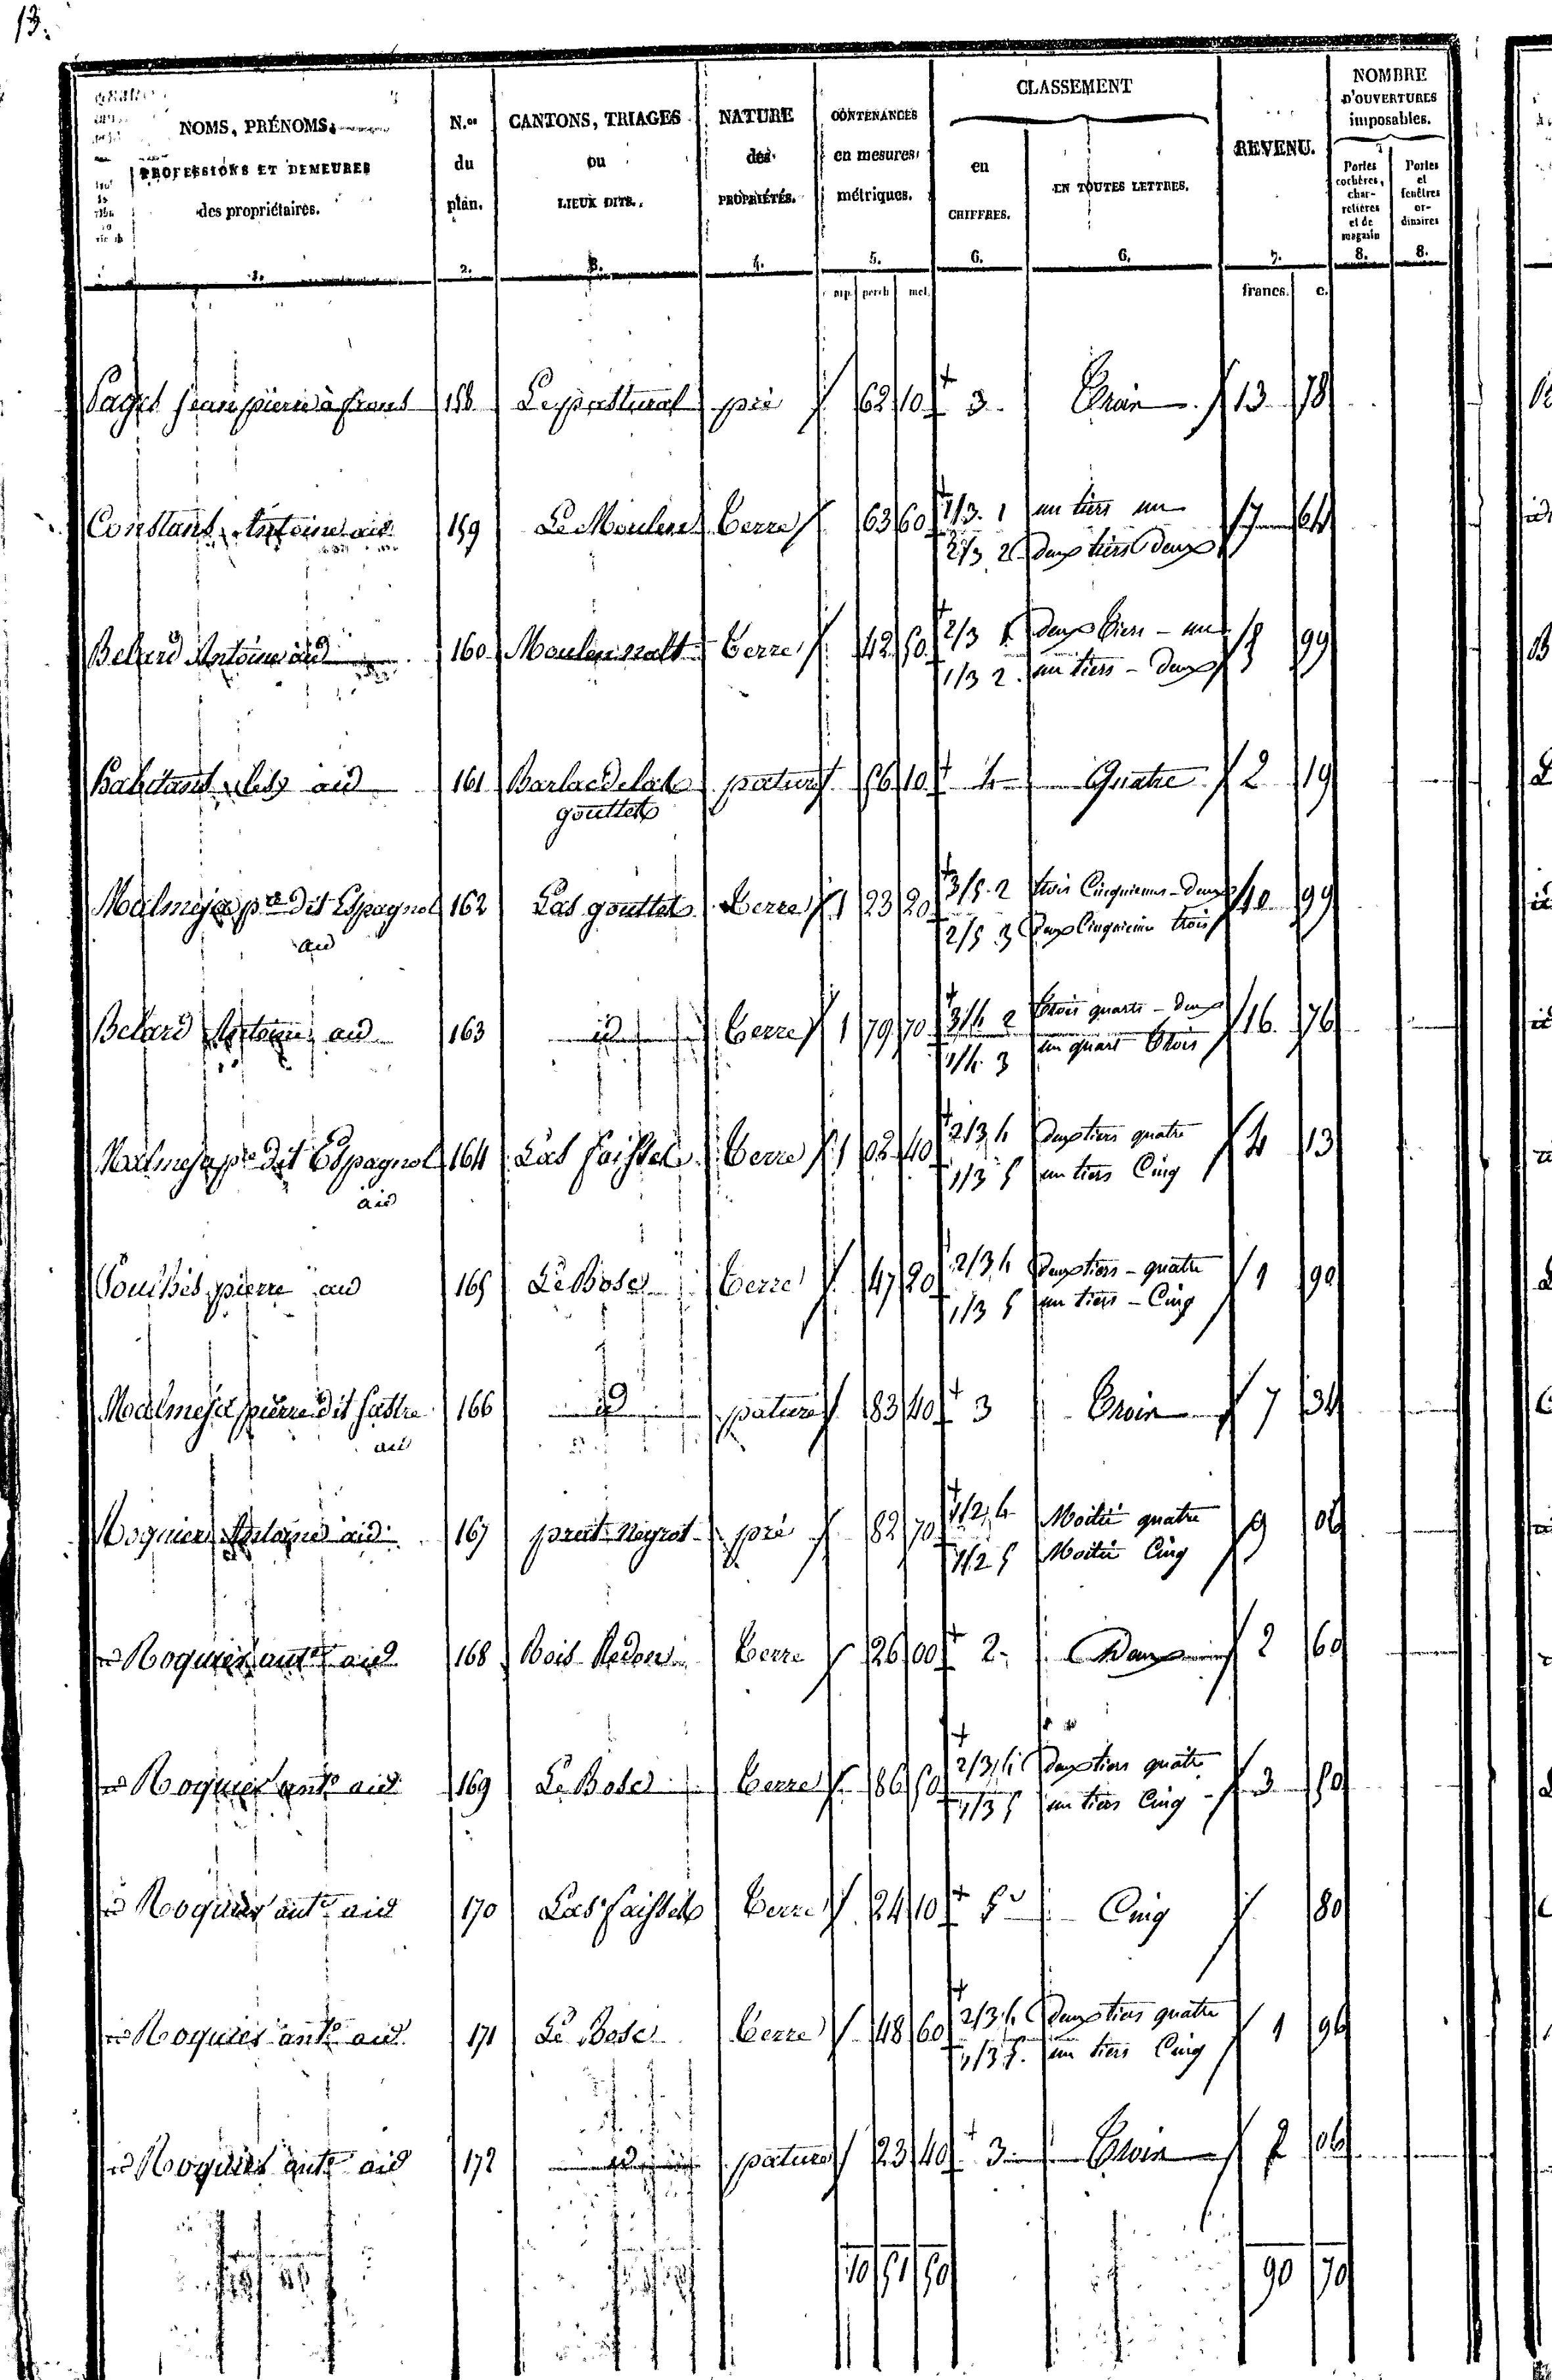 13.
NOMS, PRÉNOMS,
PROFESSIONS ET DEMEURES
des propriétaires.
1.
N.os
du
plan.
2.
CANTONS, TRIAGES
ou
LIEUX DITS.
3.
NATURE
des
PROPRIÉTÉS.
4.
CONTENANCES
en mesures
métriques.
5.
arp. perch. met.
CLASSEMENT
en
CHIFFRES.
6.
EN TOUTES LETTRES.
6.
REVENU.
7.
francs. c.
NOMBRE
D'OUVERTURES
imposables.
Portes
cochères,
char-
retières
et de
magasin
8.
Portes
et
fenêtres
or-
dinaires
8.
Paget jean pierre à 158 Le pastural pré 62 10 3 Trois 13 78
Constant Antoine aud 159 Le Moulene Terre 63 60 1/3 1 un tiers un 7 64
2/3 2 deux tiers deux
Belard Antoine aud 160 Terre 42 50 2/3 1 deux tiers - un 99
1/3 2 un tiers - deux
aud 161 Barlac de las pature 56 10 4 Quatre 2 19
gouttets
Malmeja pre dit Espagnol 162 Las gouttets Terre 1 23 20 3/5 2 trois Cinquiemes - deux 10 99
aud 2/5 3 deux Cinquieme trois
Belard Antoine aud 163 id Terre 1 79 70 3/4 2 trois quarts - deux 16 76
1/4 3 un quart trois
Malmeja pre dit Espagnol 164 Las faissets Terre 1 02 40 2/3 4 deux tiers quatre 4 13
aud 1/3 5 un tiers Cinq
pierre aud 165 Le Bosc Terre 47 20 2/3 4 deux tiers - quatre 1 90
1/3 5 un tiers - Cinq
Malmeja pierre dit fattre 166 id pature 83 40 3 Trois 7 34
aud
Noguier Antoine aud 167 prat Negrot pré 82 70 1/2 4 Moitié quatre 9 06
1/2 5 Moitié Cinq
Noguier ante aud 168 Bois Redon Terre 26 00 2 Deux 2 60
Noguier ante aud 169 Le Bosc Terre 86 50 2/3 4 deux tiers quatre 3 50
1/3 5 un tiers Cinq
Noguier ante aud 170 Las faissets Terre 24 10 5 Cinq 80
Noguier ante aud 171 Le Bosc Terre 48 60 2/3 4 deux tiers quatre 1 96
1/3 5 un tiers Cinq
Noguier ante aud 172 id pature 23 40 3 Trois 2 06
10 51 50 90 70